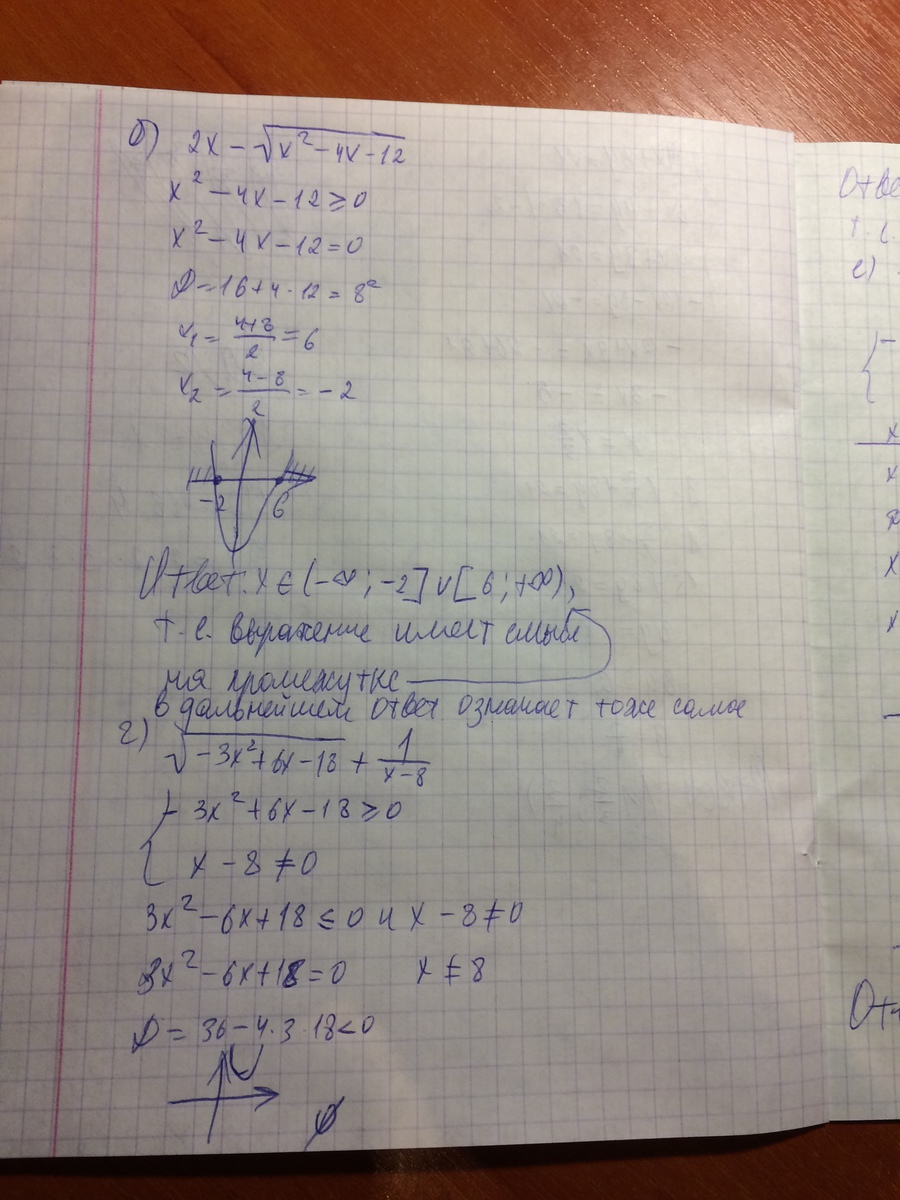 б) 2x − √(x² − 4x − 12)
x² − 4x − 12 ≥ 0
x² − 4x − 12 = 0
D = 16 + 4 · 12 = 8²
x₁ = (4+8)/2 = 6
x₂ = (4−8)/2 = −2
−2 6
Ответ: x ∈ (−∞; −2] ∪ [6; +∞),
т.е. выражение имеет смысл
на промежутке
в дальнейшем ответ означает тоже самое
г) √(−3x² + 6x − 18) + 1/(x−8)
{ −3x² + 6x − 18 ≥ 0
x − 8 ≠ 0
3x² − 6x + 18 ≤ 0 и x − 8 ≠ 0
3x² − 6x + 18 = 0 x ≠ 8
D = 36 − 4 · 3 · 18 < 0
∅
Отве
т.е.
е)
{ −
x
x
x
x
От